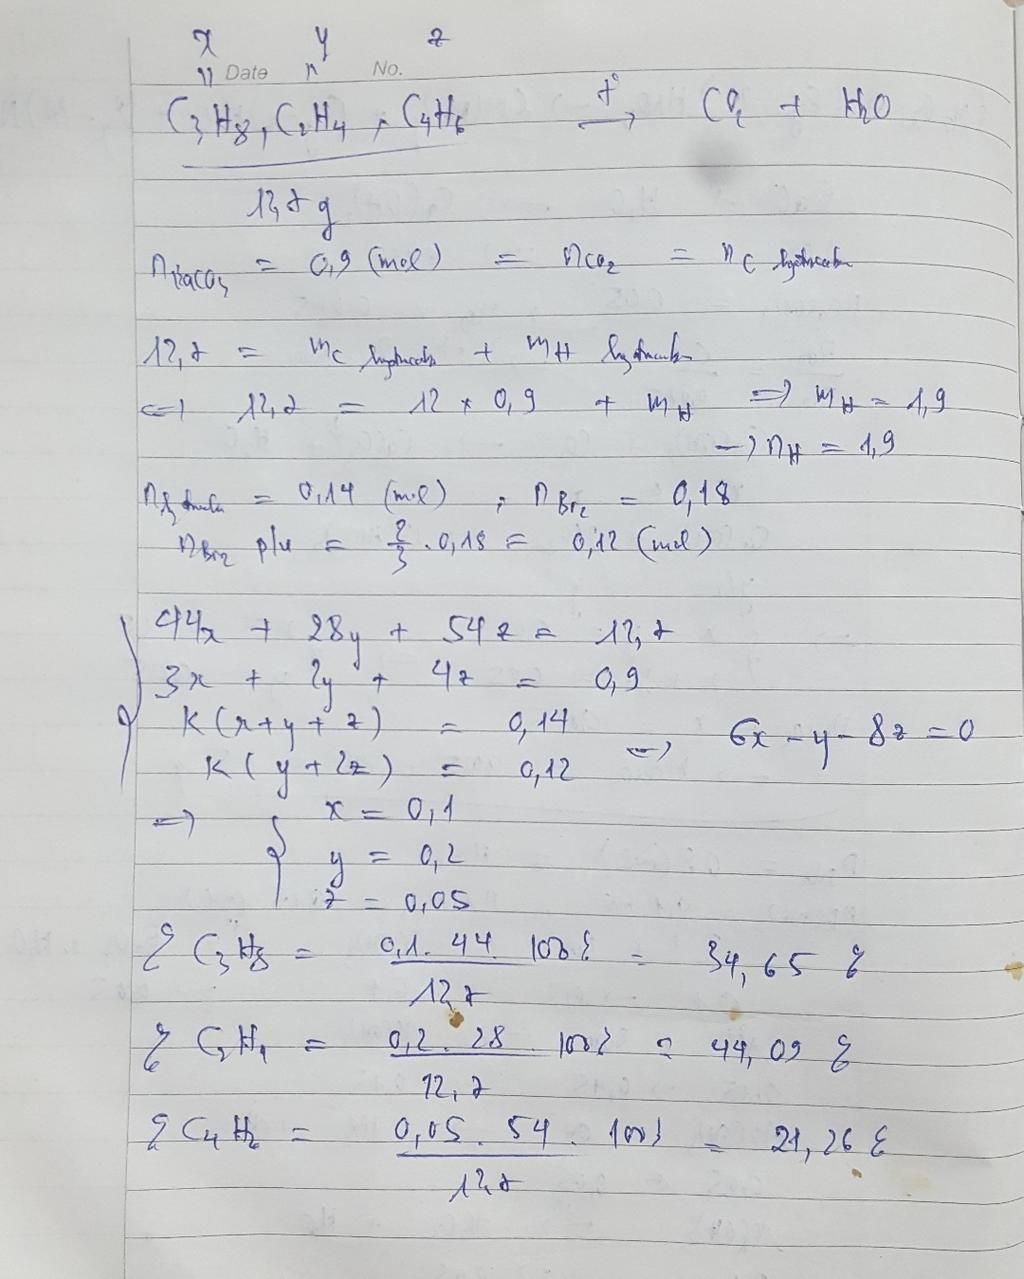 x y z
" Date " No.
C3H8, C2H4, C4H6 t° → CO2 + H2O
12,7 g
nBaCO3 = 0,9 (mol) = nCO2 = nC hydrocacbon
12,7 = mC hydrocacbon + mH hydrocacbon
<=> 12,7 = 12 * 0,9 + mH => mH = 1,9
-> nH = 1,9
= 0,14 (mol) ; nBr2 = 0,18
nBr2 p/ư = 2/3 . 0,18 = 0,12 (mol)
44x + 28y + 54z = 12,7
3x + 2y + 4z = 0,9
K(x+y+z) = 0,14
K(y+2z) = 0,12 => 6x - y - 8z = 0
=> x = 0,1
y = 0,2
z = 0,05
% C3H8 = 0,1 . 44 . 100% / 12,7 = 34,65 %
% C2H4 = 0,2 . 28 . 100% / 12,7 = 44,09 %
% C4H6 = 0,05 . 54 . 100% / 12,7 = 21,26 %